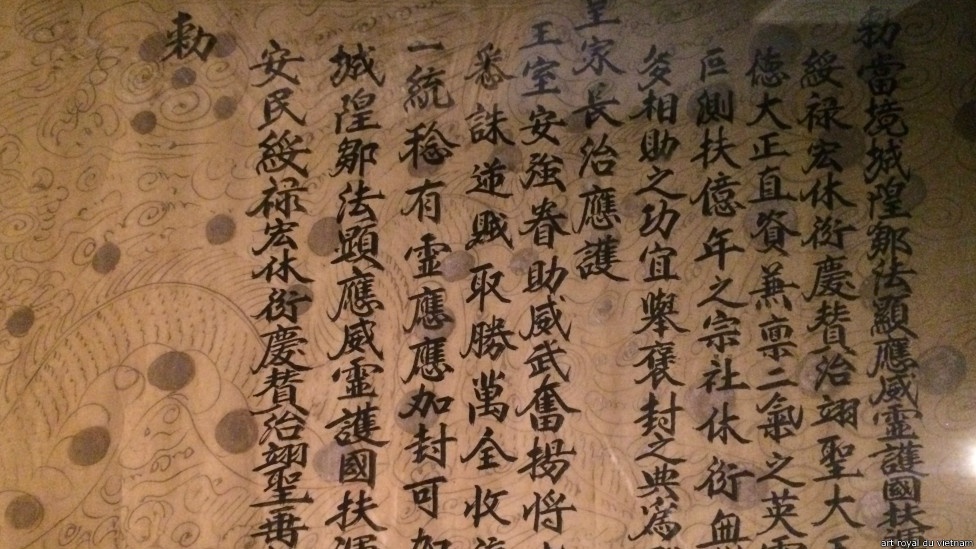 勅當境城隍鄒法顯應威靈護國扶
綏禄宏休衍慶賛治翊聖大王
德大正直資兼禀二氣之英
叵測扶億年之宗社休衍無
多相助之功宜舉褒封之典爲
皇家長治應護
王室安強眷助威武奮揚将
悉誅逆賊取勝萬全收
一統稔有靈應應加封可加
城隍鄒法顕應威靈護國扶運
安民綏禄宏休衍慶賛治翊聖
勅
art royal du vietnam